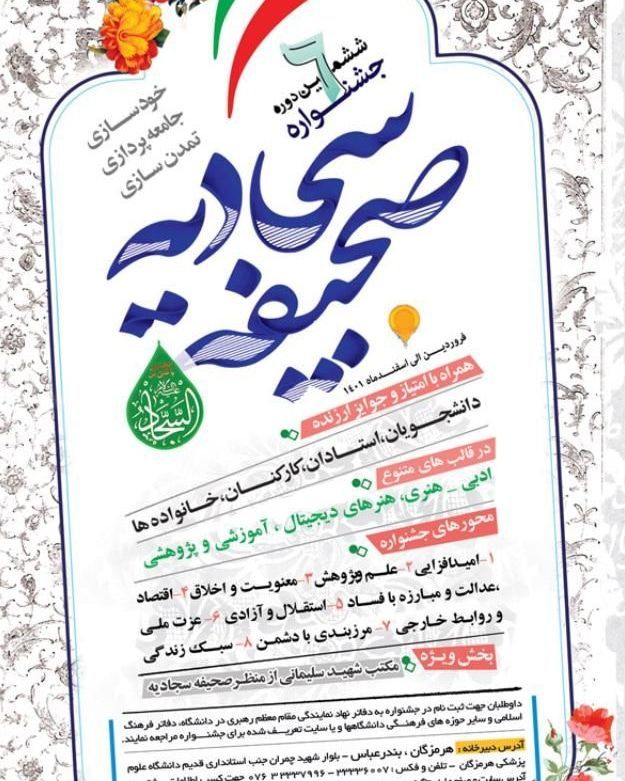 ششمین دوره
جشنواره
صحیفه سجادیه
خودسازی
جامعه پردازی
تمدن سازی
السجاد
فروردین الی اسفندماه ۱۴۰۱
همراه با امتیاز و جوایز ارزنده
دانشجویان، استادان، کارکنان، خانواده ها
در قالب های متنوع
ادبی - هنری، هنرهای دیجیتال، آموزشی و پژوهشی
محورهای جشنواره
۱- امیدافزایی ۲- علم وپژوهش ۳- معنویت و اخلاق ۴- اقتصاد
،عدالت و مبارزه با فساد ۵- استقلال و آزادی ۶- عزت ملی
و روابط خارجی ۷- مرزبندی با دشمن ۸- سبک زندگی
بخش ویژه : مکتب شهید سلیمانی از منظر صحیفه سجادیه
داوطلبان جهت ثبت نام در جشنواره به دفاتر نهاد نمایندگی مقام معظم رهبری در دانشگاه، دفاتر فرهنگ
اسلامی و سایر حوزه های فرهنگی دانشگاهها و یا سایت تعریف شده برای جشنواره مراجعه نمایند.
آدرس دبیرخانه : هرمزگان ، بندرعباس - بلوار شهید چمران جنب استانداری قدیم دانشگاه علوم
پزشکی هرمزگان - تلفن و فکس : ۳۳۳۳۶۰۰۷ - ۳۳۳۳۷۹۹۶ ۰۷۶